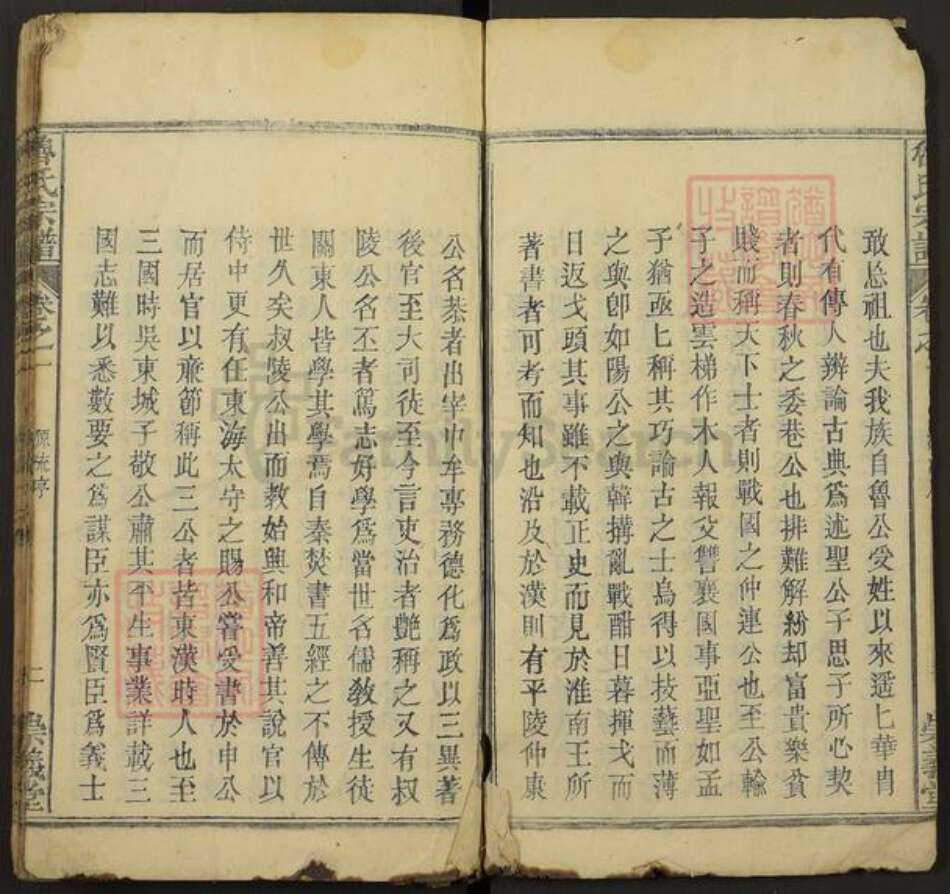 敢忘祖也夫我族自魯公受姓以來遥〻華胄
代有傳人辨論古典爲述聖公子思子所心契
者則春秋之委巷公也排難解紛却富貴樂貧
賤而稱天下士者則戰國之仲連公也至公輸
子之造雲梯作木人報父讐襄國事亞聖如孟
子猶亟〻稱其巧論古之士烏得以技藝而薄
之與卽如陽公之與韓搆亂戰酣日暮揮戈而
日返戈頭其事雖不載正史而見於淮南王所
著書者可考而知也沿及於漢則有平陵仲康
公名恭者出宰中牟專務德化爲政以三異著
後官至大司徒至今言吏治者艷稱之又有叔
陵公名丕者篤志好學爲當世名儒敎授生徒
關東人皆學其學焉自秦焚書五經之不傳於
世久矣叔陵公出而敎始興和帝善其說官以
侍中更有任東海太守之賜公嘗受書於申公
而居官以亷節稱此三公者皆東漢時人也至
三國時吳東城子敬公肅其平生事業詳載三
國志難以悉數要之爲謀臣亦爲賢臣爲義士
魯氏宗譜
卷之一
源流序
崇義堂
FamilySearch